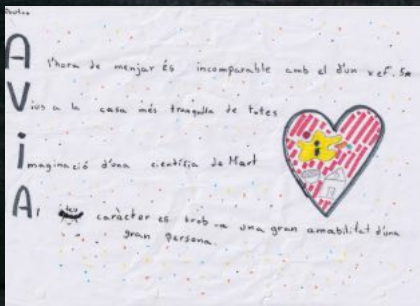 A l'hora de menjar és incomparable amb el d'un xef. 5★
Vius a la casa més tranquil·la de totes
imaginació d'una científica de Mart
Al teu caràcter es troba una gran amabilitat d'una
gran persona.